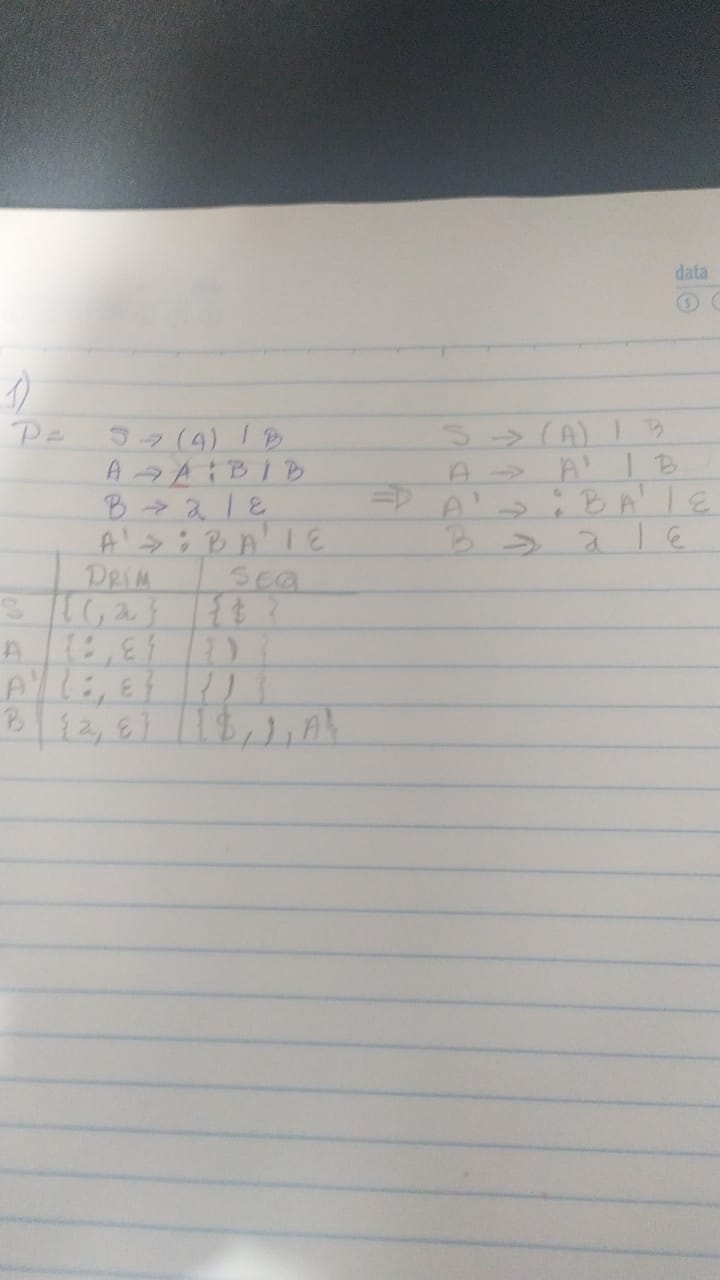 data
1)
P= S → (A) | B
A → A : B | B
B → a | ε
A' → : B A' | ε
⇒
S → (A) | B
A → A' | B
A' → : B A' | ε
B → a | ε
PRIM SEQ
S {(, a} {$}
A {:, ε} {)}
A' {:, ε} {)}
B {a, ε} {$, ), A'}